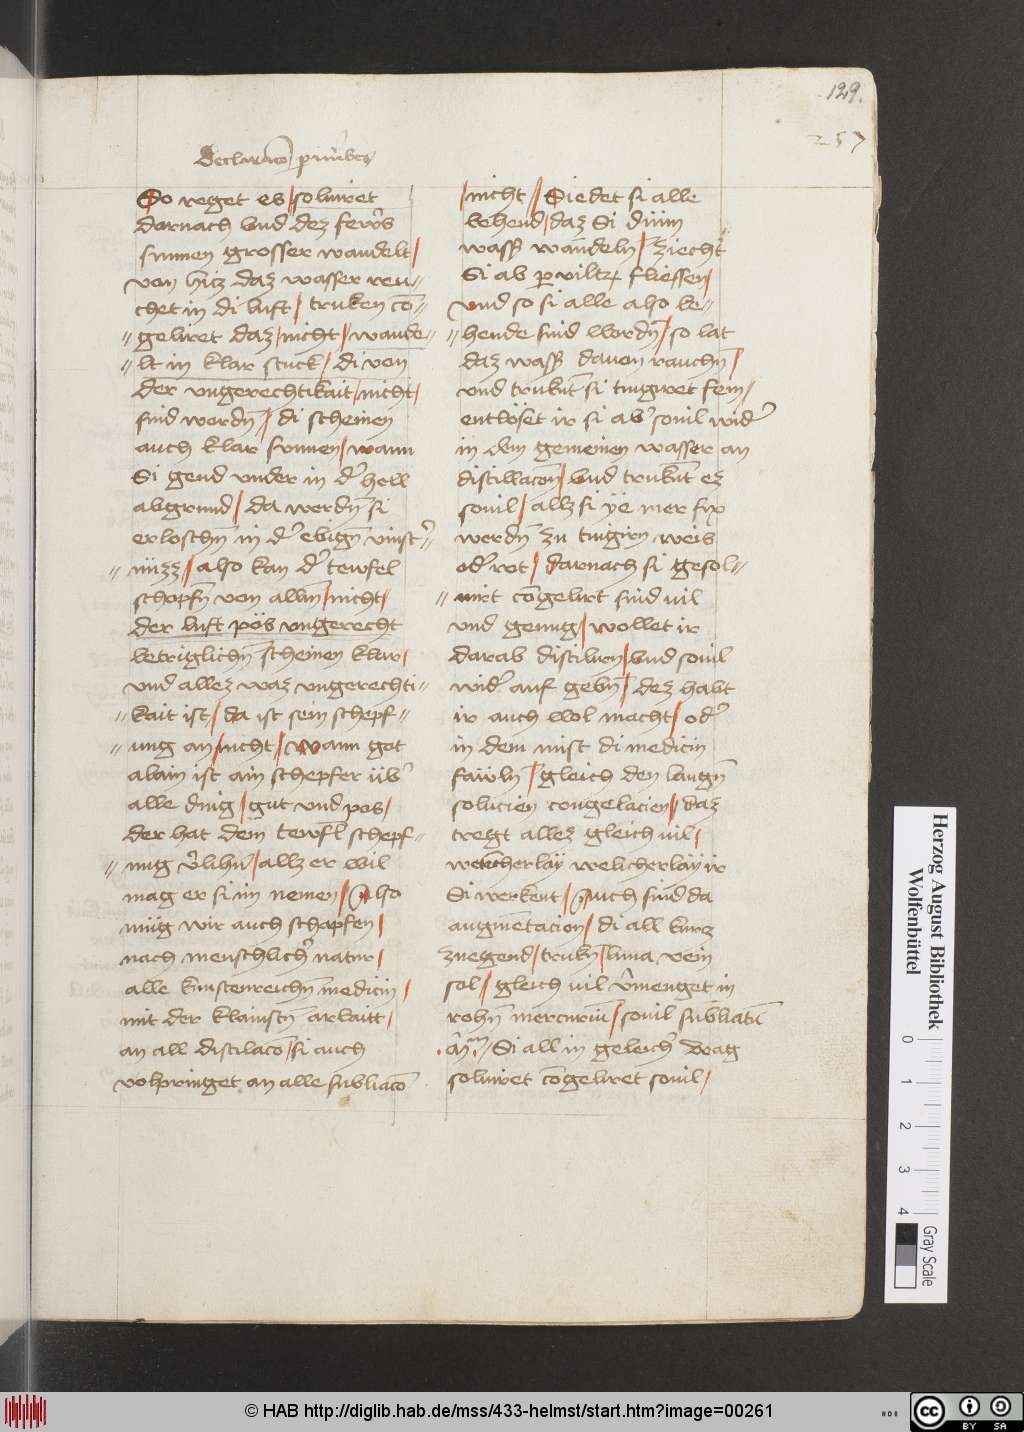 129.
257
Declaracō
So reget es / soluiret
darnach vnd dez fewrs
sunnen grosser wandelt /
von hicz daz wasser reu-
chet in di luft / truken cō-
geliret daz / nicht / wande-
lt in klar stuck / di von
der vngerechtikait / nicht /
sind wordn̄ / di scheinen
auch klar sunnen / wann
Si gend vnder in dʼ hell
abgrund / da werdn̄ si
erloschn̄ in dʼ ebign̄ vinstʼ-
nüzz / also kan dʼ tewfel
schopfn̄ von allm̄ / nicht /
der luft pös vngerecht
betriglichn̄ scheinen klar /
vnd allez waz vngerechti-
kait ist / da ist sein schepf-
ung an / nicht / wann got
alain ist ain schepfer übʼ
alle ding / gut vnd pos /
der hat dem tewfl schepf-
ung / allz er wil
mag er si im nemen / Also
müg wir auch schapfen /
nach menschlichʼ natur /
alle kunstenreichn̄ medicin /
mit der klainstn̄ arbaitt /
an all distilacō / si auch
volpringet an alle sublīacō
/ nicht / Siedet si alle
behend / daz Si dünn
wassʼ wandeln / ziecht
Si ab fliessen /
vnd so si alle also be-
hende sind wordn̄ / so lat
daz wassʼ dauon rauchn̄ /
vnd truknt si tingiret fein /
entlöset ir si abʼ souil widʼ
in dem gemeinen wasser an
distillacōn / vnd truknt ez
souil / allz si ye mer fix
werdn̄ zu tingirn weis
odʼ rot / darnach si gesol-
uirt cōgelirt sind uil
vnd genug / wollet ir
darab distilirn / vnd souil
widʼ auf gebn̄ / dez habt
ir auch wol macht / odʼ
in dem mist di medicin
fäwln / gleich den langn̄
solucien congelacien / daz
tregt allez gleich uil /
welicherlay ir
Si werkent / Auch sind da
augmētacion / di all kurcz
zuegend / trukn̄ / luna vein
sol / gleich uil vʼmenget in
rohn̄ mercuriū / souil sublīatū
Si all in geleichʼ wag
soluiret cōgeliret souil /
Herzog August Bibliothek
Wolfenbüttel
0
1
2
3
4
Gray Scale
© HAB http://diglib.hab.de/mss/433-helmst/start.htm?image=00261
HAB
cc
BY SA